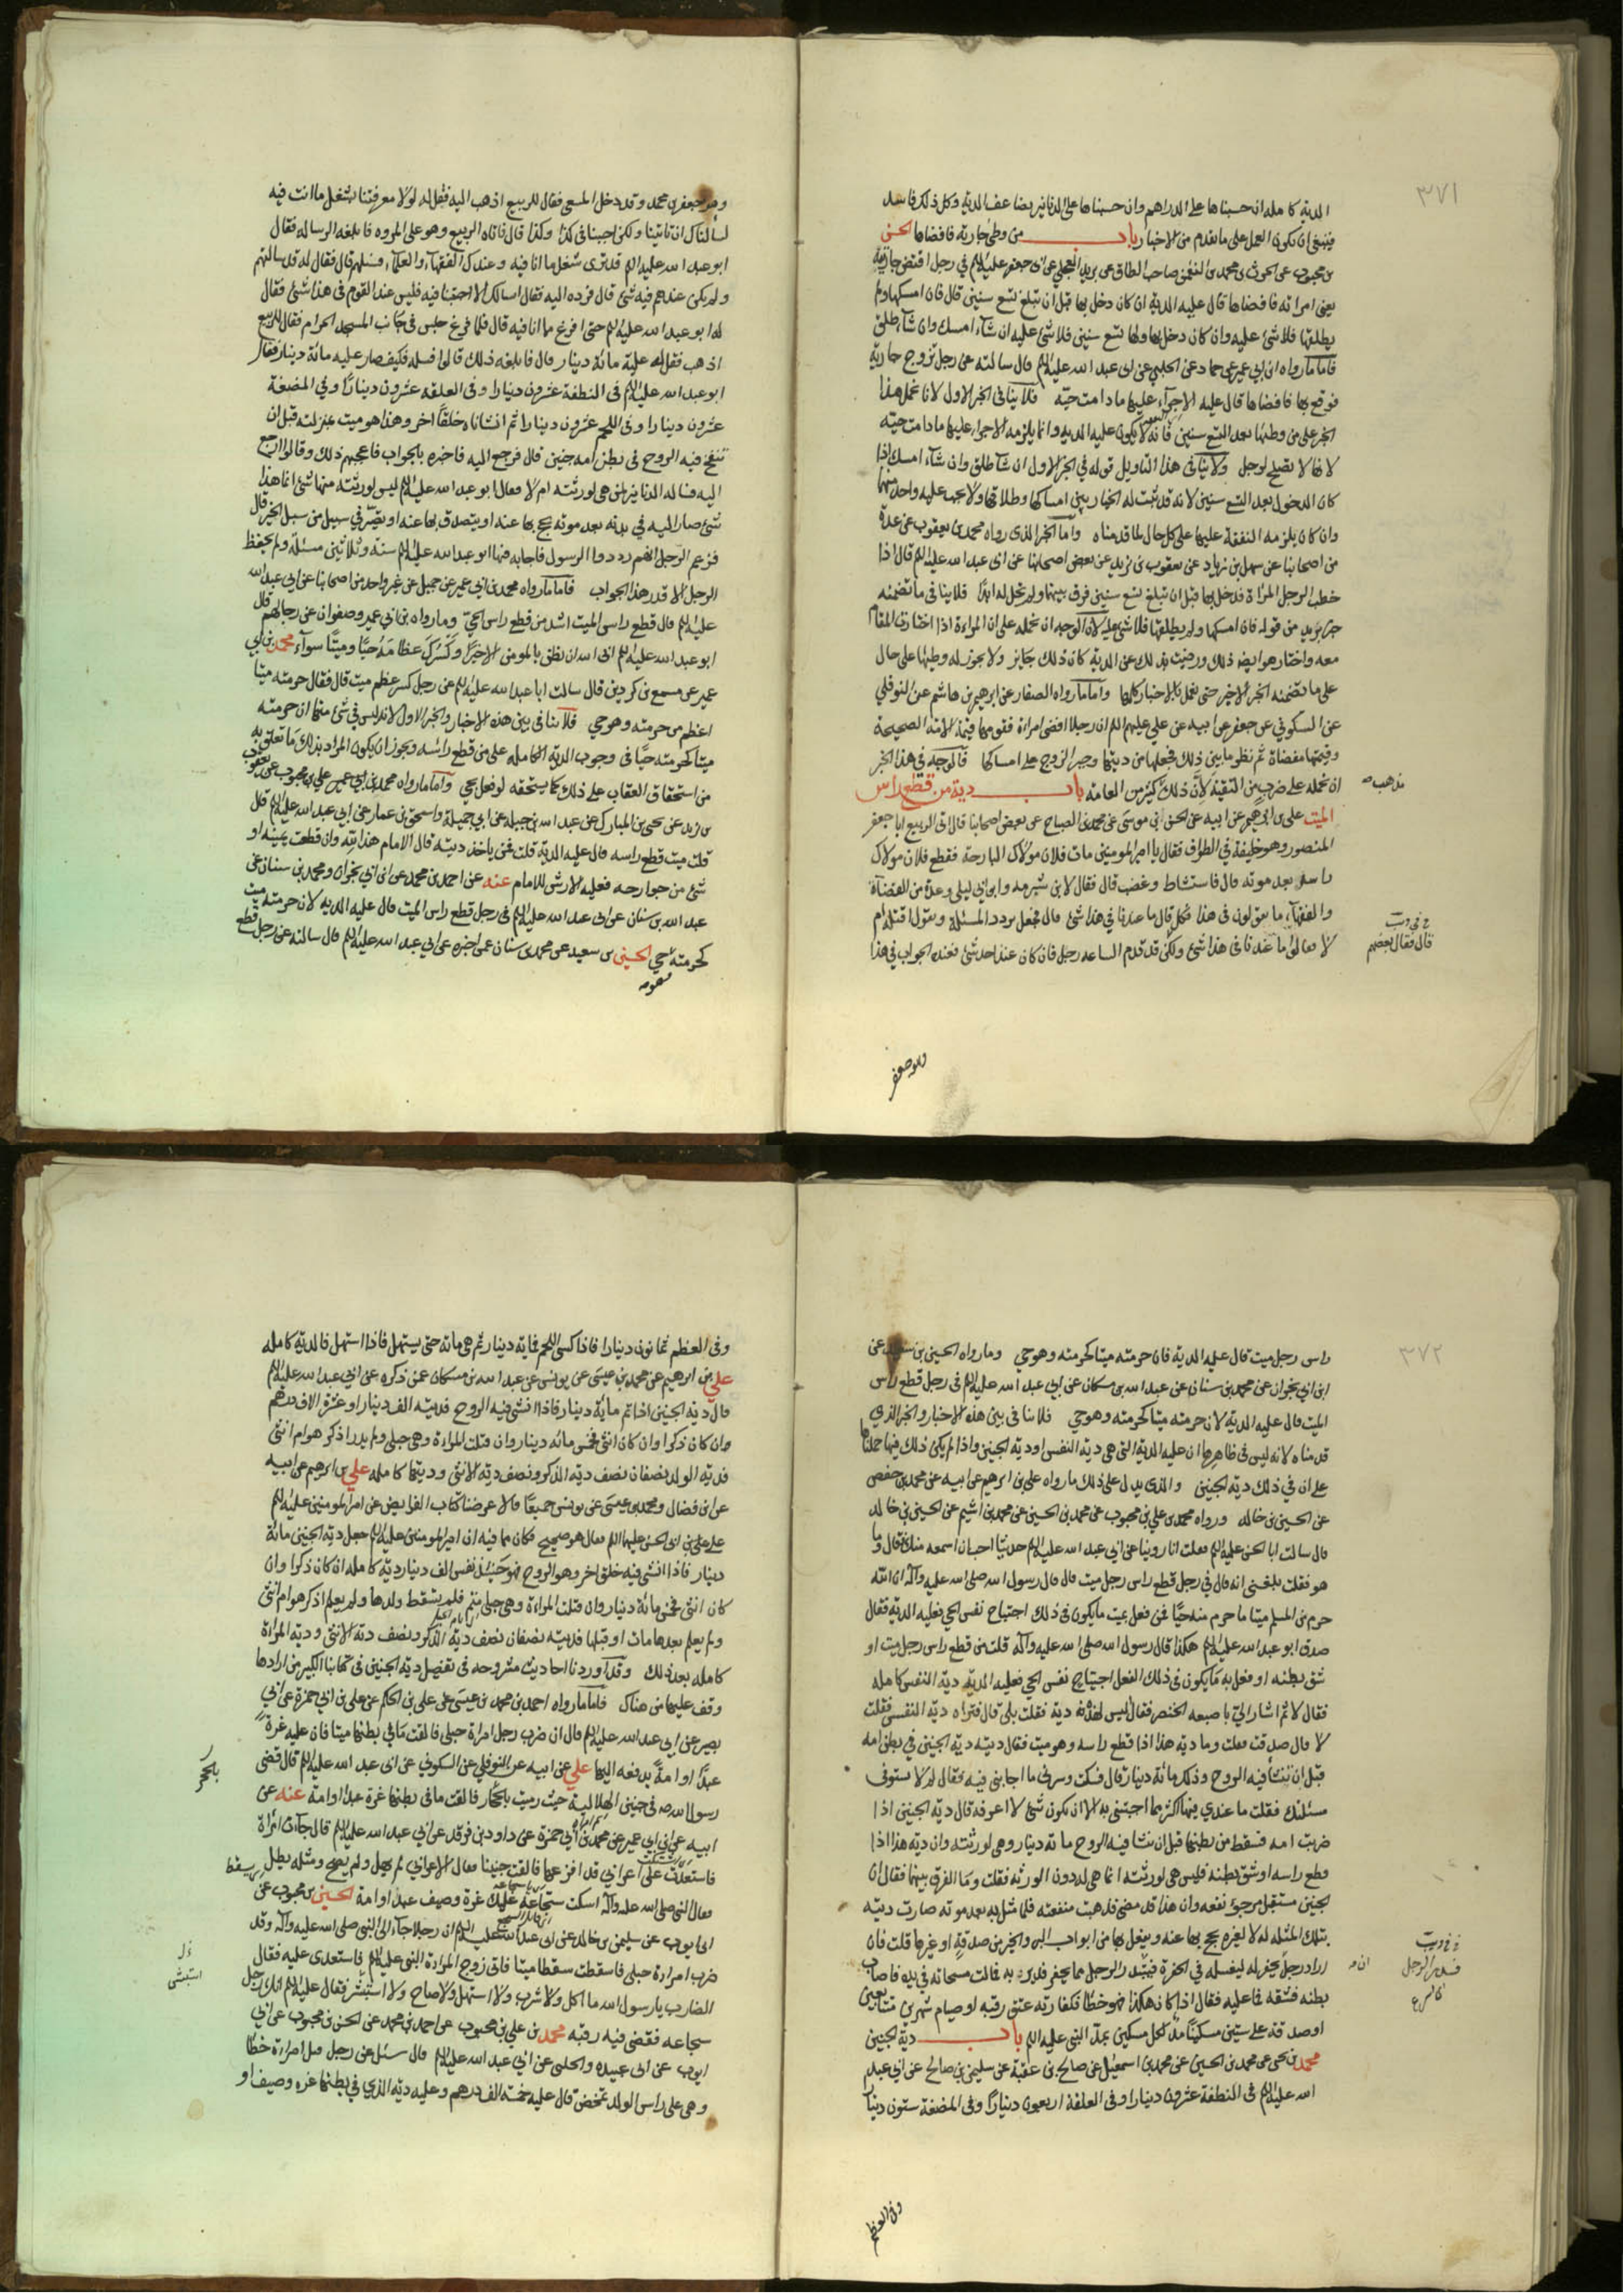 ٣٧١
الدية كاملة ان حسبناها على الدراهم وان حسبناها على الدنانير نصف الدية وكل ذلك فاسد
فينبغي ان يكون العمل على ما تقدم من الاخبار باب من وطئ جارية فافضاها الحسن
بن محبوب عن الحرث بن محمد بن النعمن صاحب الطاق عن بريد العجلي عن ابي جعفر عليه السلم في رجل اقتض جارية
يعني امراته فافضاها قال عليه الدية ان كان دخل بها قبل ان تبلغ تسع سنين قال فان امسكها ولم
يطلقها فلا شئ عليه وان كان دخل بها ولها تسع سنين فلا شئ عليه ان شاء امسك وان شاء طلق
فاما ما رواه ابن ابي عمير عن حماد عن الحلبي عن ابي عبد الله عليه السلم قال سالته عن رجل تزوج جارية
فوقع بها فافضاها قال عليه الاجراء عليها ما دامت حية فلا ينافي الخبر الاول لانا نحمل هذا
الخبر على من وطئها بعد التسع سنين فانه لا يكون عليه الدية وانما يلزمه الاجراء عليها ما دامت حية
لانها لا تصلح لرجل ولا ينافي هذا التاويل قوله في الخبر الاول ان شاء طلق وان شاء امسك اذا
كان الدخول بعد التسع سنين لانه قد ثبت له الخيار بين امساكها وطلاقها ولا يجب عليه واحد منهما
وان كان يلزمه النفقة عليها على كل حال لما قدمناه واما الخبر الذي رواه محمد بن يعقوب عن عدة
من اصحابنا عن سهل بن زياد عن يعقوب بن يزيد عن بعض اصحابنا عن ابي عبد الله عليه السلم قال اذا
خطب الرجل المراة فدخل بها قبل ان تبلغ تسع سنين فرق بينهما ولم تحل له ابدا فلا ينافي ما تضمنه
خبر بريد من قوله فان امسكها ولم يطلقها فلا شئ عليه لان الوجه ان نحمله على ان المراة اذا اختارت المقام
معه واختار هو ايضا ذلك ورضيت بذلك عن الدية كان ذلك جايز ولا يجوز له وطئها على حال
على ما تضمنه الخبر الاخير حتى نعمل بالاخبار كلها واما ما رواه الصفار عن ابرهيم بن هاشم عن النوفلي
عن السكوني عن جعفر عن ابيه عن علي عليهم السلم ان رجلا افضى امراة فقومها قيمة الامة الصحيحة
وقيمتها مفضاة ثم نظر ما بين ذلك فجعلها من ديتها وجبر الزوج على امساكها فالوجه في هذا الخبر
ان نحمله على ضرب من التقية لان ذلك كثير من العامة باب دية من قطع راس
مذهب
الميت علي بن ابرهيم عن ابيه عن الحسن بن موسى عن محمد بن الصباح عن بعض اصحابنا قال اتى الربيع ابا جعفر
المنصور وهو خليفة في الطواف فقال يا امير المومنين مات فلان مولاك البارحة فقطع فلان مولاك
راسه بعد موته قال فاستشاط وغضب قال فقال لابن شبرمه وابن ابي ليلى وعدة من القضاة
والفقهاء ما تقولون في هذا فكل قال ما عندنا في هذا شئ قال فجعل يردد المسئلة ويقول اقتله ام
قال فقال بعضهم
لا فقالوا ما عندنا في هذا شئ ولكن قد قدم الساعة رجل فان كان عند احد شئ فعنده الجواب في هذا
وهو جعفر
وهو جعفر بن محمد وقد دخل المسعى فقال للربيع اذهب اليه فقل له لولا معرفتنا بشغل ما انت فيه
لسالناك ان تاتينا ولكن اجبنا في كذا وكذا قال فاتاه الربيع وهو على المروه فابلغه الرسالة فقال
ابو عبد الله عليه السلم قد ترى شغل ما انا فيه وعندك الفقهاء والعلماء فسلهم قال فقال له قد سالتهم
ولم يكن عندهم فيه شئ قال فرده اليه فقال اسالك الا اجبتنا فيه فليس عند القوم في هذا شئ فقال
له ابو عبد الله عليه السلم حتى افرغ مما انا فيه قال فلما فرغ جلس في جانب المسجد الحرام فقال للربيع
اذهب فقل له عليه مائة دينار قال فابلغه ذلك قالوا فسله فكيف صار عليه مائة دينار فقال
ابو عبد الله عليه السلم في النطفة عشرون دينارا وفي العلقه عشرون دينارا وفي المضغة
عشرون دينارا وفي اللحم عشرون دينارا ثم انشاناه خلقا اخر وهذا هو ميت بمنزلته قبل ان
تنفخ فيه الروح في بطن امه جنين قال فرجع اليه فاخبره بالجواب فاعجبهم ذلك وقالوا ارجع
اليه فساله الدنانير لمن هي لورثته ام لا فقال ابو عبد الله عليه السلم ليس لورثته منها شئ انما هذا
شئ صار اليه في بدنه بعد موته يحج بها عنه او يتصدق بها عنه او تصير في سبيل من سبل الخير قال
فزعم الرجل انهم ردوا الرسول فاجابه فيها ابو عبد الله عليه السلم ستة وثلاثين مسئلة ولم يحفظ
الرجل الا قدر هذا الجواب فاما ما رواه محمد بن ابي عمير عن جميل عن غير واحد من اصحابنا عن ابي عبد الله
عليه السلم قال قطع راس الميت اشد من قطع راس الحي وما رواه بن ابي عمير وصفوان عن رجالهم قال
ابو عبد الله عليه السلم ابى الله ان يظن بالمومن الا خيرا وكسرك عظامه حيا وميتا سواء محمد بن ابي
عمير عن مسمع بن كردين قال سالت ابا عبد الله عليه السلم عن رجل كسر عظم ميت قال فقال حرمته ميتا
اعظم من حرمته وهو حي فلا تنافي بين هذه الاخبار والخبر الاول لانه ليس في شئ منها ان حرمته
ميتا كحرمته حيا في وجوب الدية الكاملة على من قطع راسه ويجوز ان يكون المراد بذلك ما تعلق به
من استحقاق العقاب على ذلك كما يستحقه لو فعل بحي واما ما رواه محمد بن ابي عمير علي بن محبوب عن يعقوب
بن يزيد عن يحيى بن المبارك عن عبد الله بن جبلة عن ابي جميلة واسحق بن عمار عن ابي عبد الله عليه السلم قال
قلت ميت قطع راسه قال عليه الدية قلت فمن ياخذ ديته قال الامام هذا لله وان قطعت يمينه او
شئ من جوارحه فعليه الارش للامام عنه عن احمد بن محمد عن ابن ابي نجران ومحمد بن سنان عن
عبد الله بن سنان عن ابي عبد الله عليه السلم في رجل قطع راس الميت قال عليه الدية لان حرمته ميت
كحرمته حي الحسين بن سعيد عن محمد بن سنان عمن اخبره عن ابي عبد الله عليه السلم قال سالته عن رجل قطع
وهو
٣٧٢
راس رجل ميت قال عليه الدية فان حرمته ميتا كحرمته وهو حي وما رواه الحسين بن سعيد عن
ابن ابي نجران عن محمد بن سنان عن عبد الله بن مسكان عن ابي عبد الله عليه السلم في رجل قطع راس
الميت قال عليه الدية لان حرمته ميتا كحرمته وهو حي فلا تنافي بين هذه الاخبار والخبر الذي
قدمناه لانه ليس في ظاهرها ان عليه الدية التي هي دية النفس او دية الجنين واذا لم يكن ذلك فيها حملناها
على ان في ذلك دية الجنين والذي يدل على ذلك ما رواه علي بن ابرهيم عن ابيه عن محمد بن حفص
عن الحسين بن خالد ورواه محمد بن علي بن محبوب عن محمد بن الحسين عن محمد بن اشيم عن الحسين بن خالد
قال سالت ابا الحسن عليه السلم فقلت انا روينا عن ابي عبد الله عليه السلم حديثا احب ان اسمعه منك قال وما
هو فقلت بلغني انه قال في رجل قطع راس رجل ميت قال قال رسول الله صلى الله عليه وآله ان الله
حرم من المسلم ميتا ما حرم منه حيا فمن فعل بميت ما يكون في ذلك اجتياح نفس الحي فعليه الدية فقال
صدق ابو عبد الله عليه السلم هكذا قال رسول الله صلى الله عليه وآله قلت من قطع راس رجل ميت او
شق بطنه او فعل به ما يكون في ذلك الفعل اجتياح نفس الحي فعليه الدية دية النفس كاملة
فقال لا ثم اشار الي باصبعه الخنصر فقال اليس لهذه دية فقلت بلى قال فتراه دية النفس فقلت
لا قال صدقت قلت وما دية هذا اذا قطع راسه وهو ميت فقال ديته دية الجنين في بطن امه
قبل ان تنشا فيه الروح وذلك مائة دينار قال فسكت وسرني ما اجابني فيه فقال لم لا تستوفي
مسئلتك فقلت ما عندي فيها اكثر مما اجبتني به الا ان يكون شئ لا اعرفه قال دية الجنين اذا
ضربت امه فسقط من بطنها قبل ان تنشا فيه الروح مائة دينار وهي لورثته وان دية هذا اذا
قطع راسه او شق بطنه فليس هي لورثته انما هي له دون الورثة فقلت وما الفرق بينهما فقال ان
الجنين مستقبل مرجو نفعه وان هذا قد مضى فذهبت منفعته فلما مثل به بعد موته صارت ديته
بتلك المثلة له لا لغيره يحج بها عنه ويفعل بها من ابواب البر والخير من صدقة او غيرها قلت فان
اراد رجل يحفر له ليغسله في الحفرة فسدر الرجل مما يحفر فدير به فمالت مسحاته في يده فاصاب
بطنه فشقه فما عليه فقال اذا كان هكذا فهو خطا فكفارته عتق رقبه او صيام شهرين متتابعين
او صدقة على ستين مسكينا مد لكل مسكين بمد النبي عليه السلم باب دية الجنين
محمد بن يحيى عن محمد بن الحسين عن محمد بن اسمعيل عن صالح بن عقبة عن سليمن بن صالح عن ابي عبد
الله عليه السلم في النطفة عشرون دينارا وفي العلقة اربعون دينارا وفي المضغة ستون دينارا
وفي العظم
وفي العظم ثمانون دينارا فاذا كسى اللحم فماية دينار ثم هي مائة حتى يستهل فاذا استهل فالدية كاملة
علي بن ابرهيم عن محمد بن عيسى عن يونس عن عبد الله بن مسكان عمن ذكره عن ابي عبد الله عليه السلم
قال دية الجنين اذا تم مائة دينار فاذا انشئ فيه الروح فديته الف دينار او عشرة الاف درهم
وان كان ذكرا وان كان انثى فخمس مائة دينار وان قتلت المراة وهي حبلى ولم يدر اذكر هو ام انثى
فدية الولد نصفان نصف دية الذكر ونصف دية الانثى وديتها كاملة علي بن ابرهيم عن ابيه
عن ابن فضال ومحمد بن عيسى عن يونس جميعا قالا عرضنا كتاب الفرايض عن امير المومنين عليه السلم
على ابي الحسن عليه السلم فقال هو صحيح فكان مما فيه ان امير المومنين عليه السلم جعل دية الجنين مائة
دينار فاذا انشئ فيه خلق اخر وهو الروح فهو حينئذ نفس الف دينار دية كاملة ان كان ذكرا وان
كان انثى فخمس مائة دينار وان قتلت المراة وهي حبلى متم فلم يسقط ولدها ولم يعلم اذكر هو ام انثى
ولم يعلم بعدها مات او قبلها فديته نصفان نصف دية الذكر ونصف دية الانثى ودية المراة
كاملة بعد ذلك وقد اوردنا احاديث مشروحة في تفصيل دية الجنين في كتابنا الكبير من ارادها
وقف عليها من هناك فاما ما رواه احمد بن محمد بن عيسى عن علي بن الحكم عن علي بن ابي حمزة عن ابي
بصير عن ابي عبد الله عليه السلم قال ان ضرب رجل امراة حبلى فالقت ما في بطنها ميتا فان عليه غرة
عبدا او امة يدفعه اليها علي عن ابيه عن النوفلي عن السكوني عن ابي عبد الله عليه السلم قال قضى
رسول الله ص في جنين الهلالية حيث رميت بالحجار فالقت ما في بطنها غرة عبدا او امة عنه عن
بالحجر
ابيه عن ابن ابي عمير عن محمد بن ابي حمزة عن داود بن فرقد عن ابي عبد الله عليه السلم قال جاءت امراة
فاستعدت على اعرابي قد افزعها فالقت جنينا فقال الاعرابي لم يهل ولم يصح ومثله يطل
فقال النبي صلى الله عليه وآله اسكت سجاعة عليك غرة وصيف عبد او امة الحسين بن محبوب عن
ابي ايوب عن سليمن بن خالد عن ابي عبد الله عليه السلم ان رجلا جاء الى النبي صلى الله عليه وآله وقد
ضرب امراة حبلى فاسقطت سقطا ميتا فاتى زوج المراة النبي عليه السلم فاستعدى عليه فقال
الضارب يا رسول الله ما اكل ولا شرب ولا استهل ولا صاح ولا استبشر فقال عليه السلم انك رجل
سجاعه فقضى فيه رقبه محمد بن علي بن محبوب عن احمد بن محمد عن الحسن بن محبوب عن ابي
ايوب عن ابي عبيده والحلبي عن ابي عبد الله عليه السلم قال سئل عن رجل قتل امراة خطا
وهي على راس الولد تمخض قال عليه خمسة الف درهم وعليه دية الذي في بطنها غره وصيف او